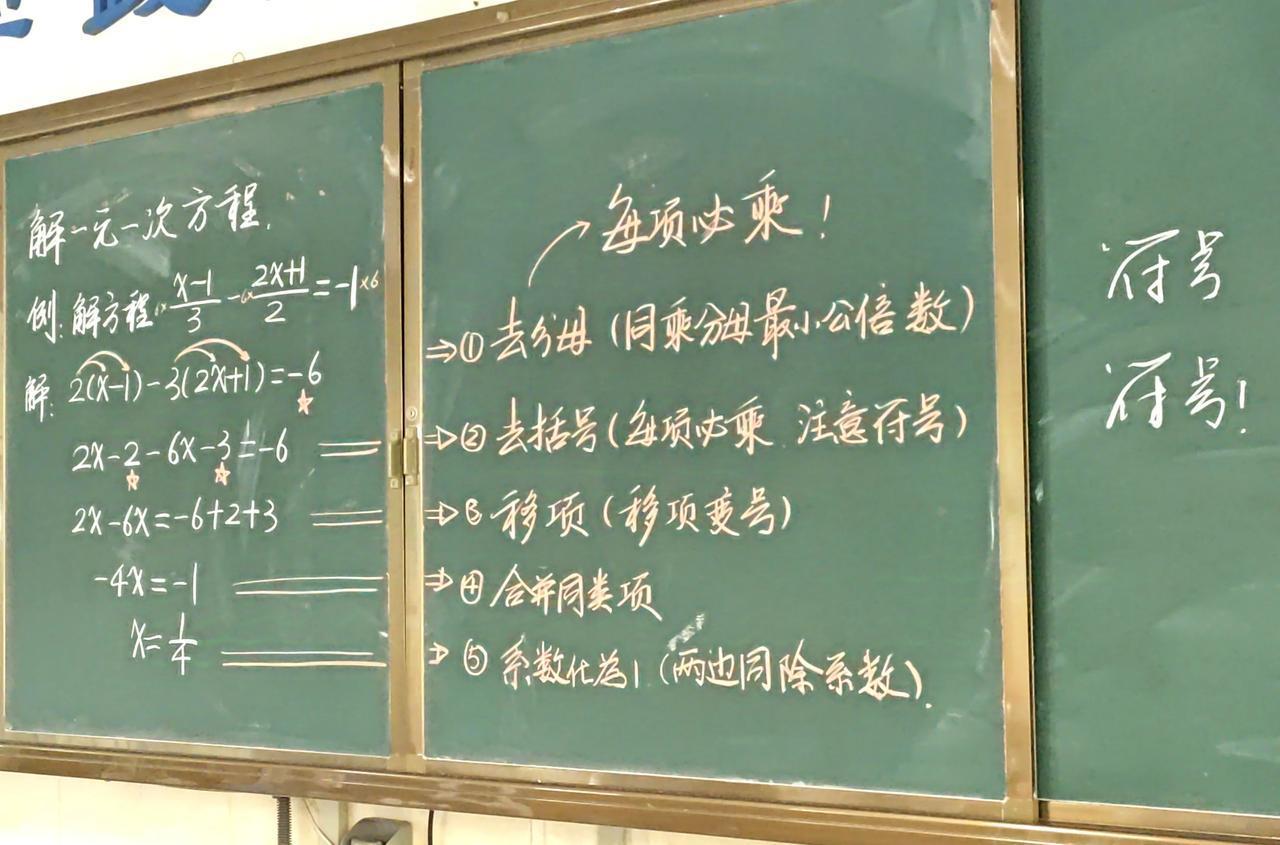 解一元一次方程.
例:解方程 (x-1)/3 - (2x+1)/2 = -1 ×6
解: 2(x-1)-3(2x+1)=-6
2x-2-6x-3=-6
2x-6x=-6+2+3
-4x=-1
x=1/4
每项必乘!
⇒① 去分母(同乘分母最小公倍数)
⇒② 去括号(每项必乘 注意符号)
⇒③ 移项(移项变号)
⇒④ 合并同类项
⇒⑤ 系数化为1(两边同除系数).
符号
符号!